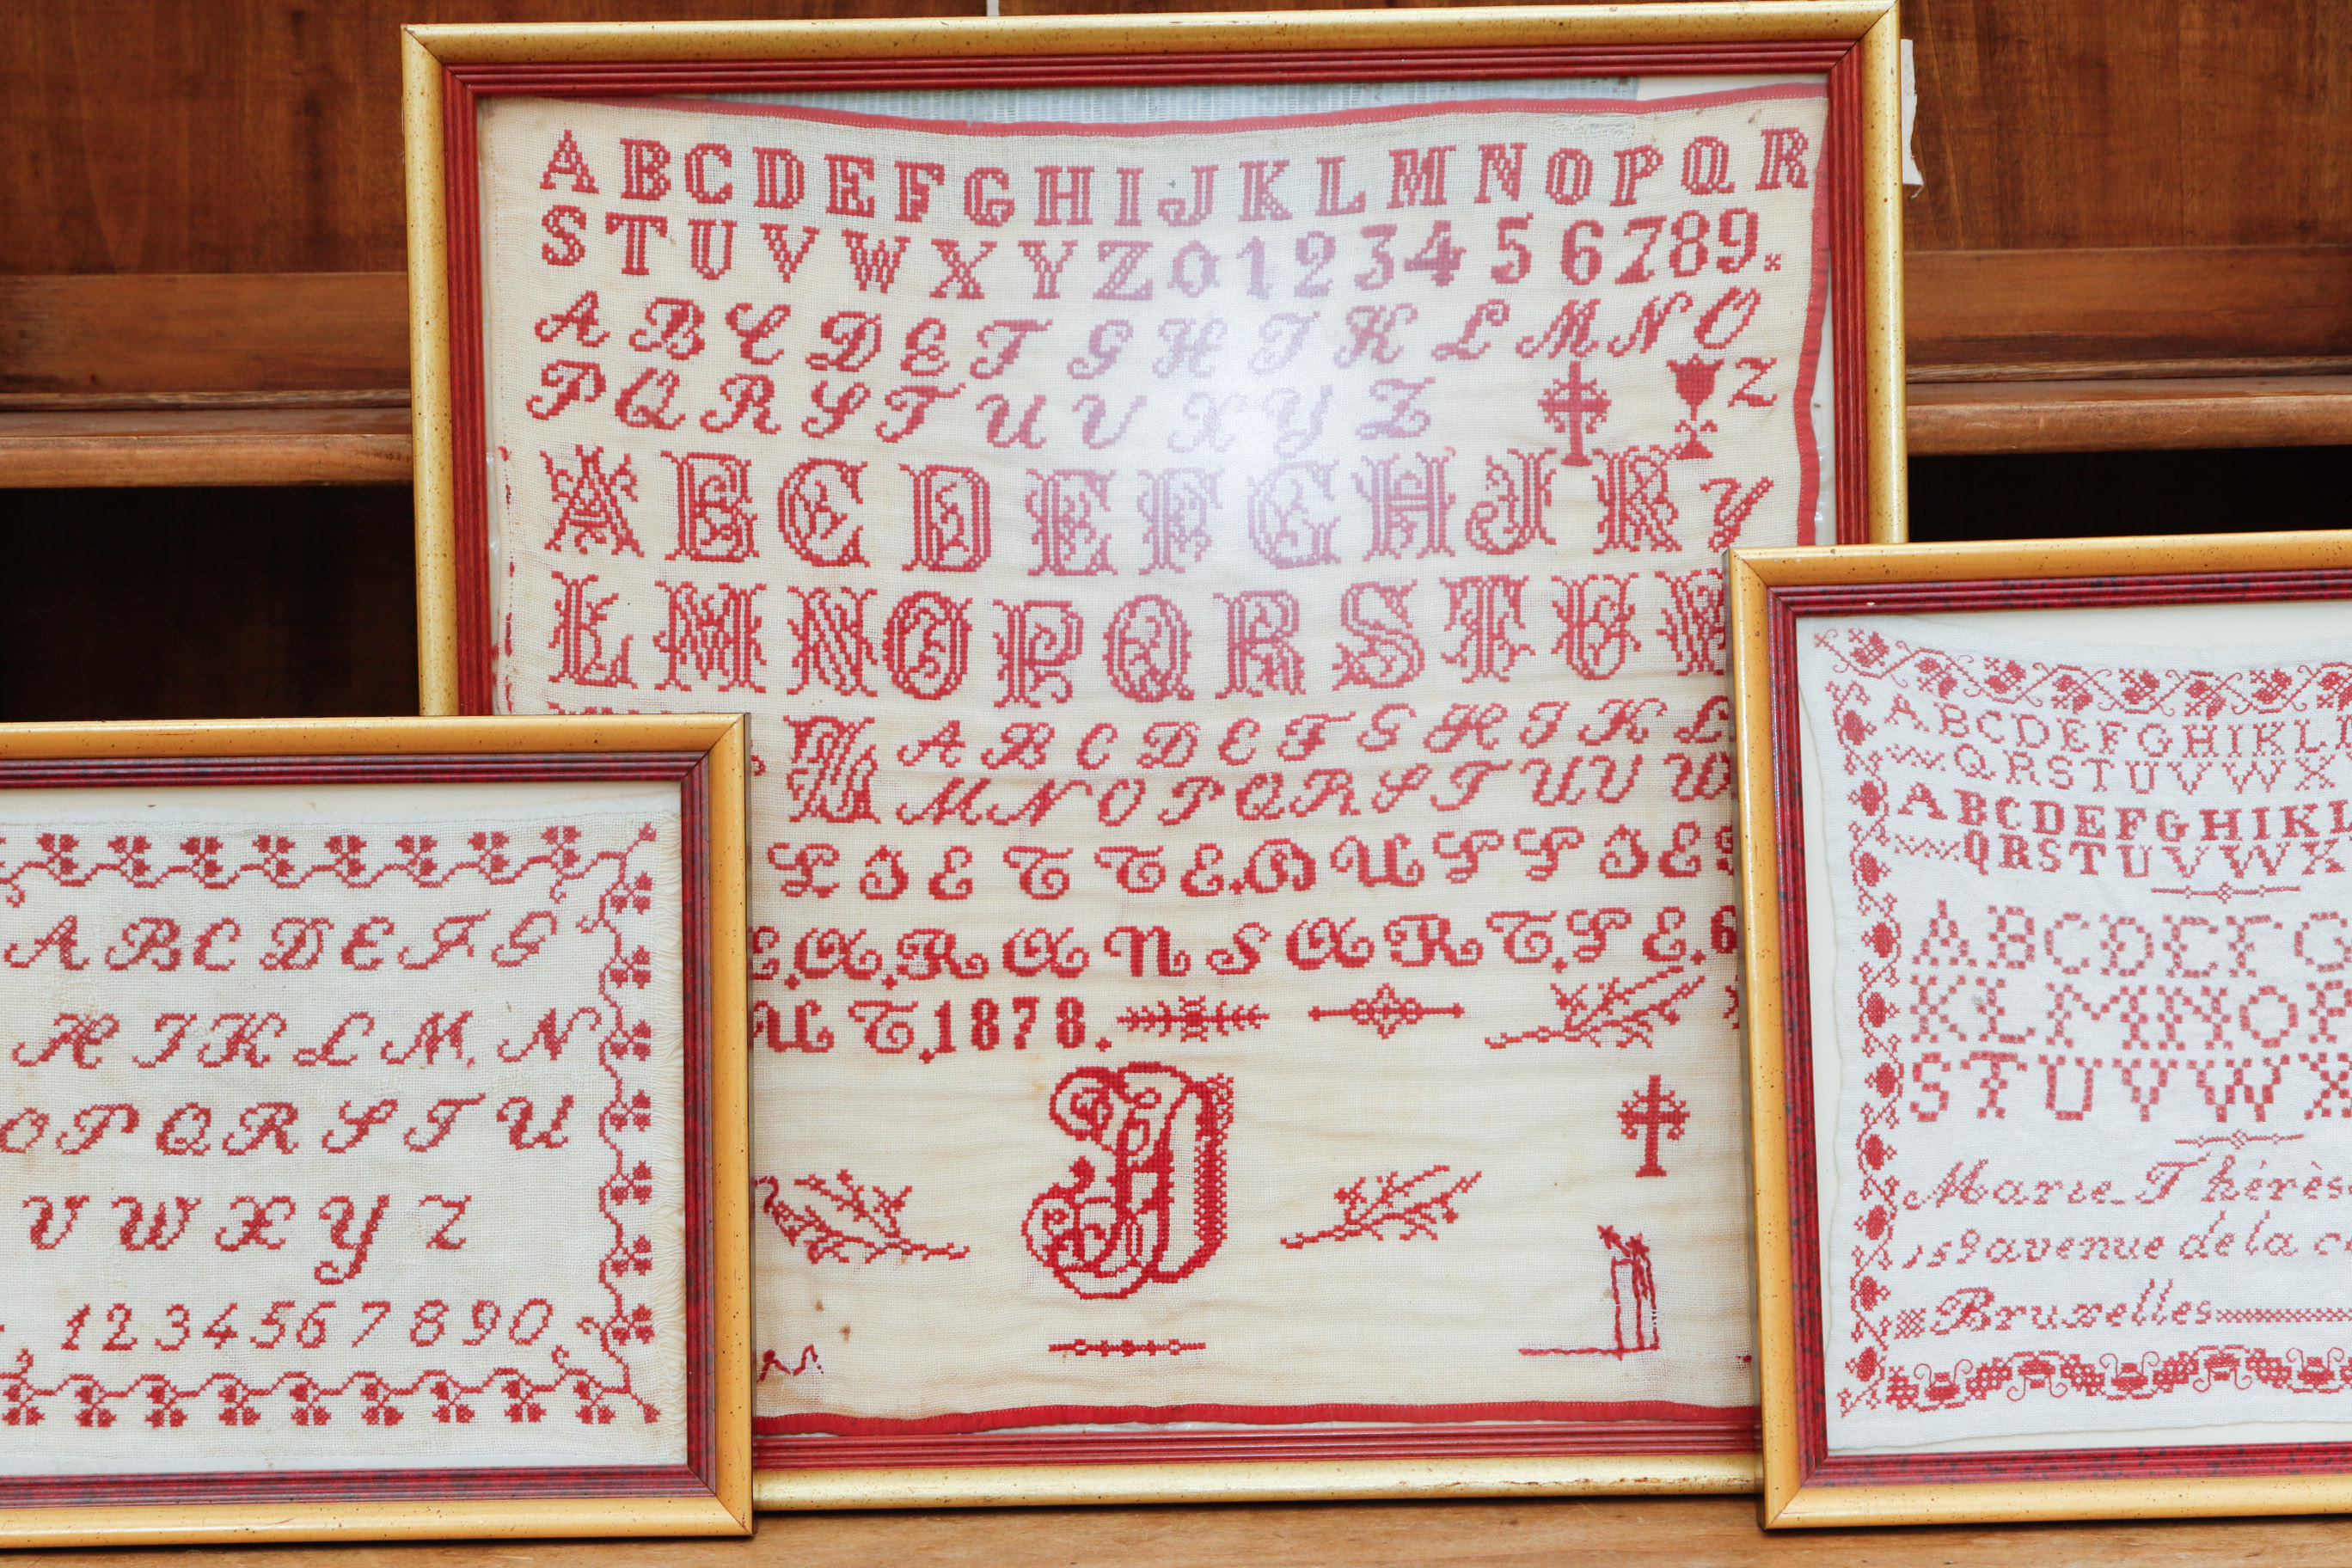 ABCDEFGHIJKLMNOPQR
STUVWXYZ0123456789.
ABCDEFGHIKLMNO
PQRSTUVXYZ Z
ABCDEFGHJK Y
LMNOPQRSTUV
ABCDEFGHIKL
MNOPQRSTUVW
1878.
ABCDEFG
HIKLM.N
OPQRSTU
VWXYZ
1234567890
ABCDEFGHIKL
QRSTUVWX
ABCDEFGHIKL
QRSTUVWX
ABCDEFG
KLMNOP
STUVWX
Marie-Thérès
159 avenue de la c
Bruxelles